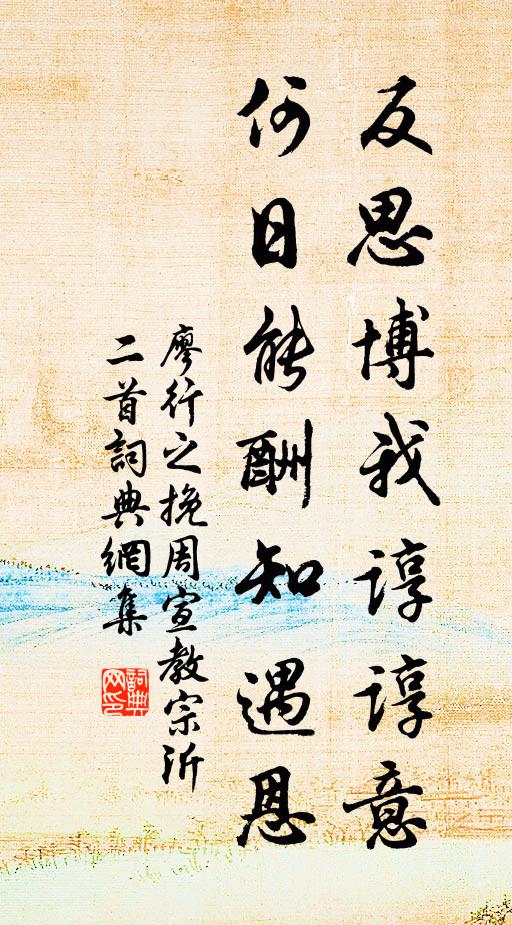 反思博我谆谆意
何日能酬知遇恩
廖行之挽周宣教宗沂
二首詞典網集
詞典网印